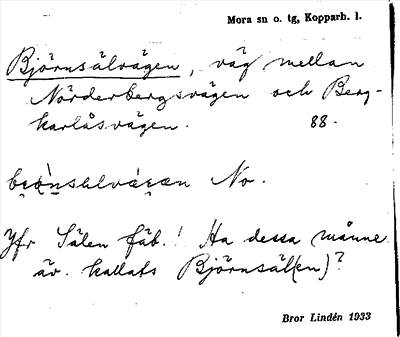 Mora sn o. tg, Kopparb. l.
Björnsälvägen, väg mellan
Nörderbergsvägen och Berg-
karlåsvägen. 88.
No.
Jfr Sälen fäb.! Ha dessa månne
äv. kallats Björnsäl(en)?
Bror Lindén 1933